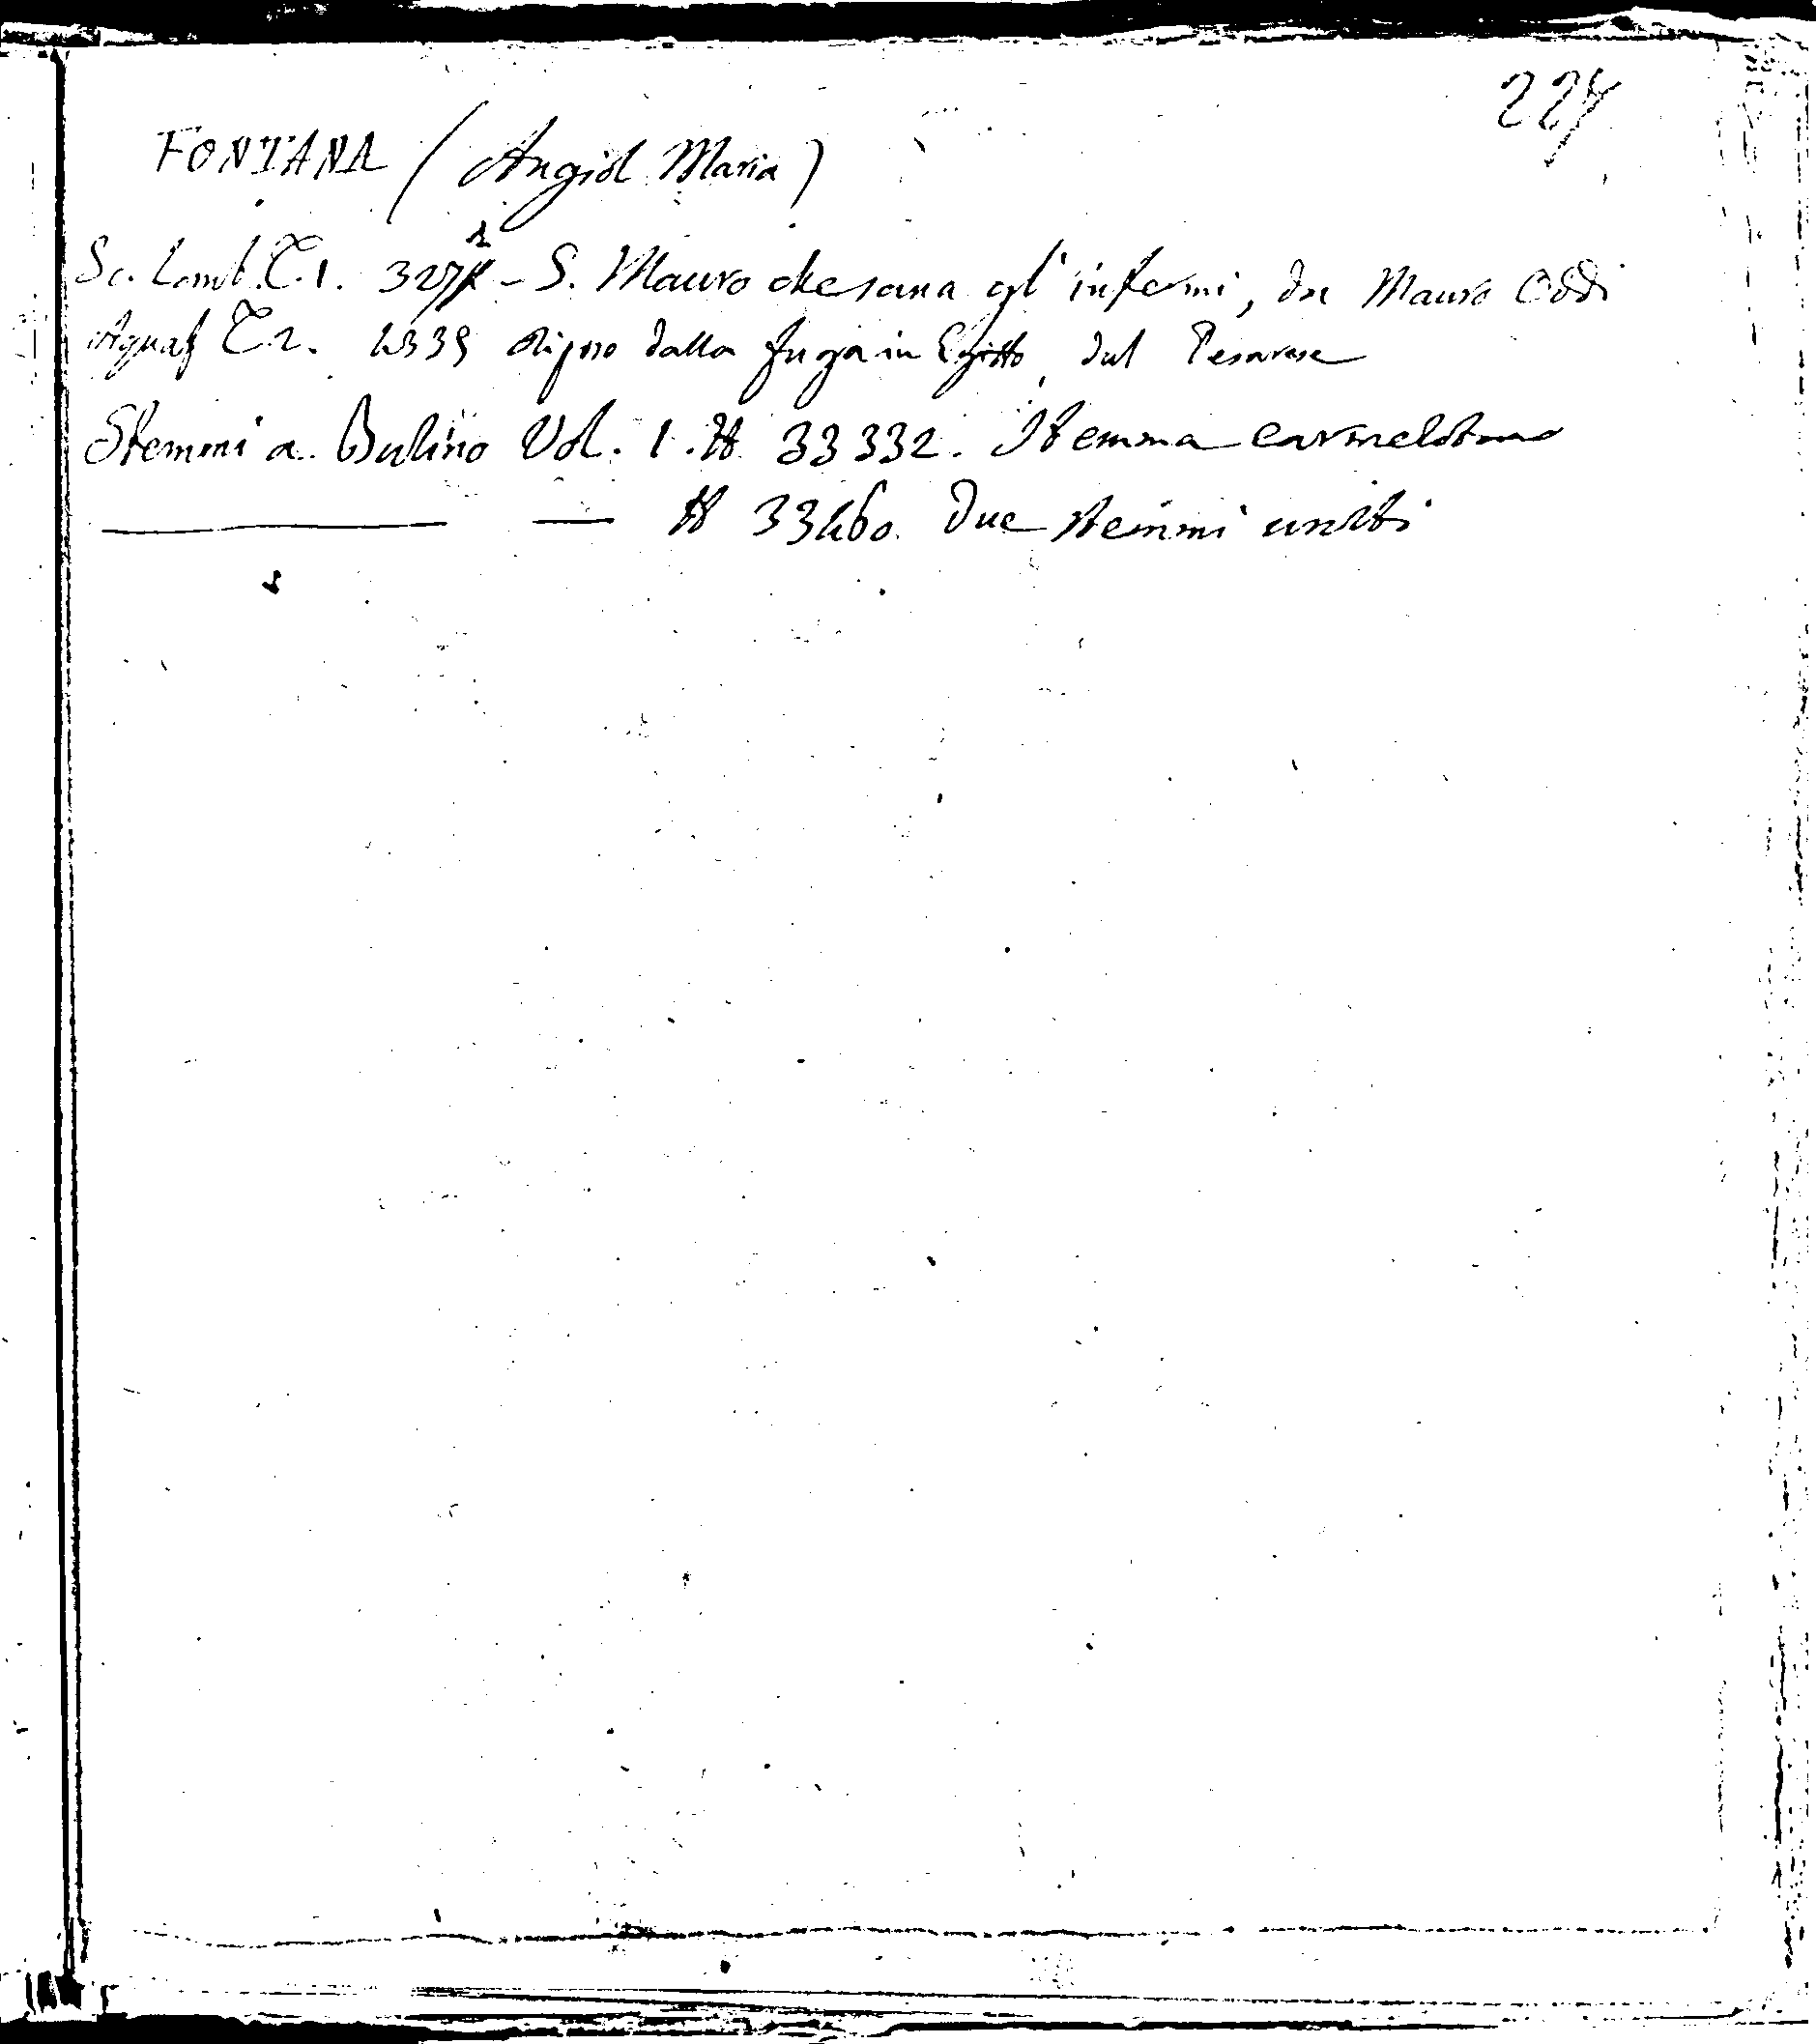 224
FONTANA (Angiol Maria)
Sc. Lomb. T. 1. 327 - S. Mauro che sana gl'infermi, da Mauro Oddi
Aquaf T. 2. 4339 Riposo dalla fuga in Egitto, dal Pesarese
Stemmi a Bulino Vol. 1. # 33332. Stemma carmelitano
— — # 33460. Due stemmi uniti